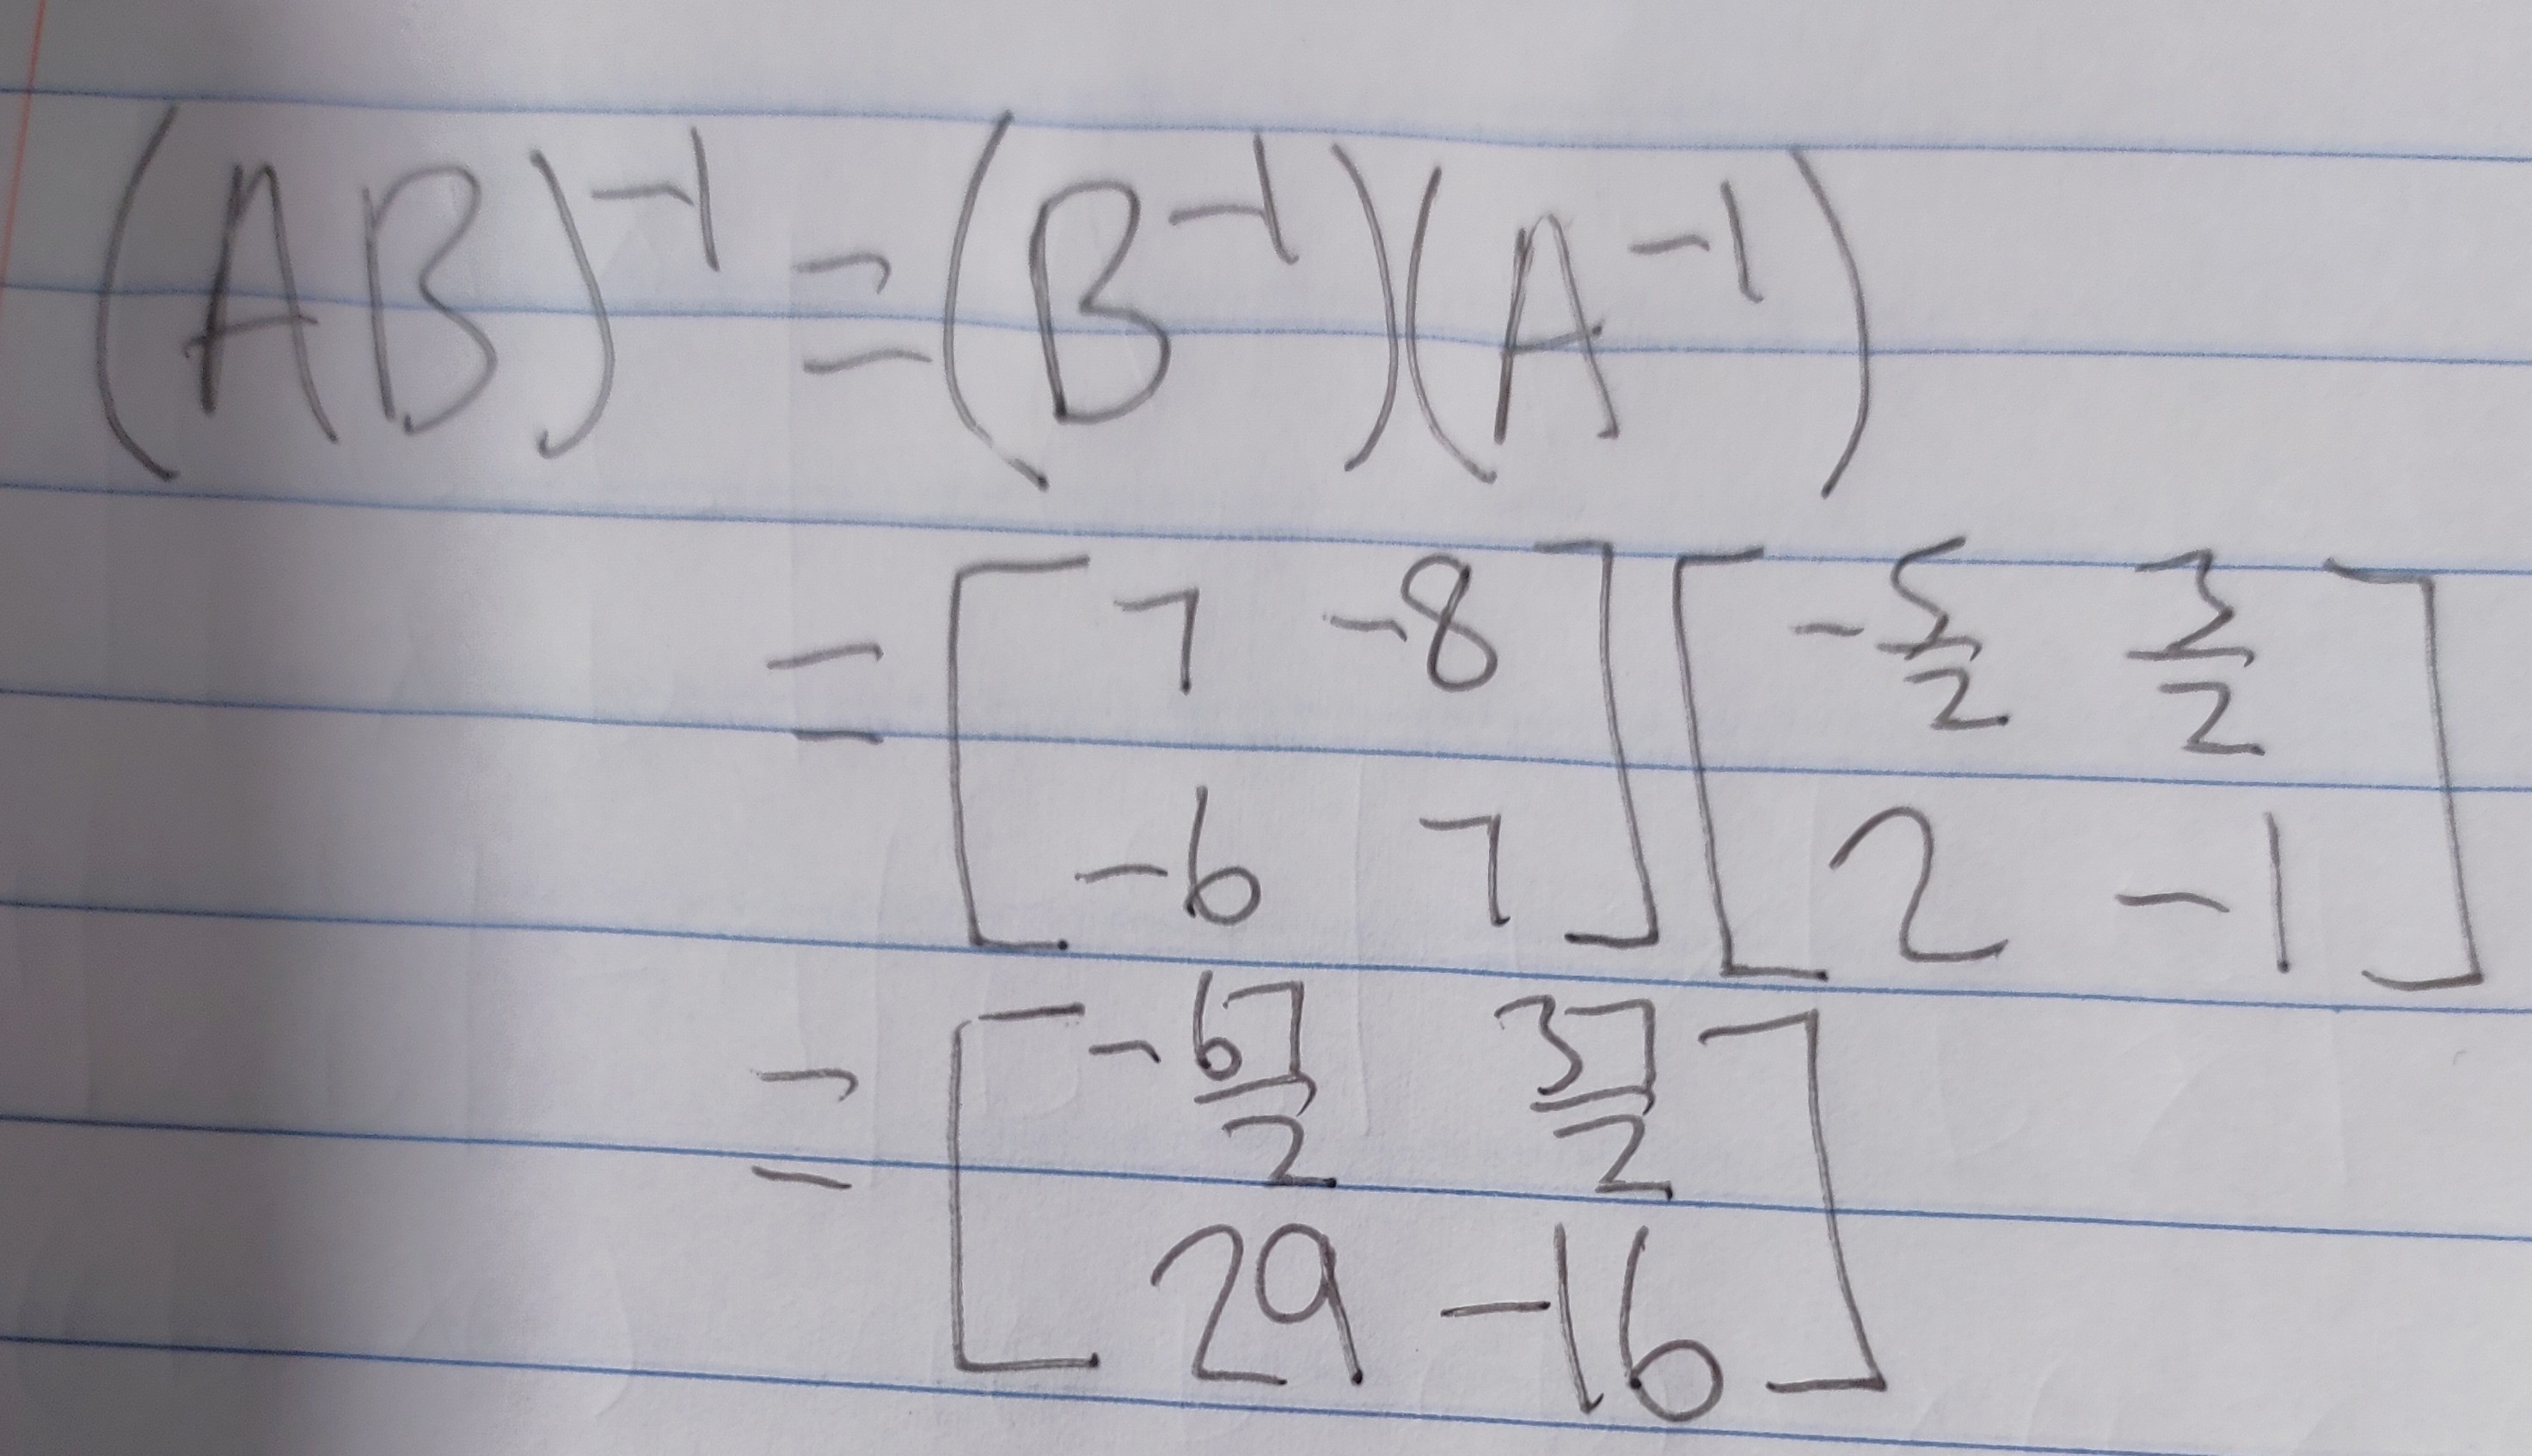 (AB)⁻¹ = (B⁻¹)(A⁻¹)
= [7 -8; -6 7] [-5/2 3/2; 2 -1]
= [-67/2 37/2; 29 -16]